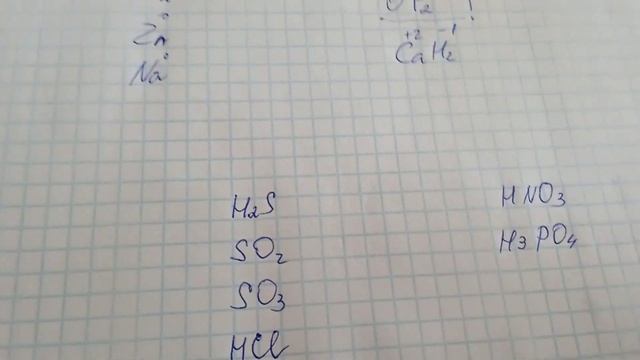 Zn⁰
Na⁰
+2 -1
CaH₂
H₂S
SO₂
SO₃
HCl
HNO₃
H₃PO₄